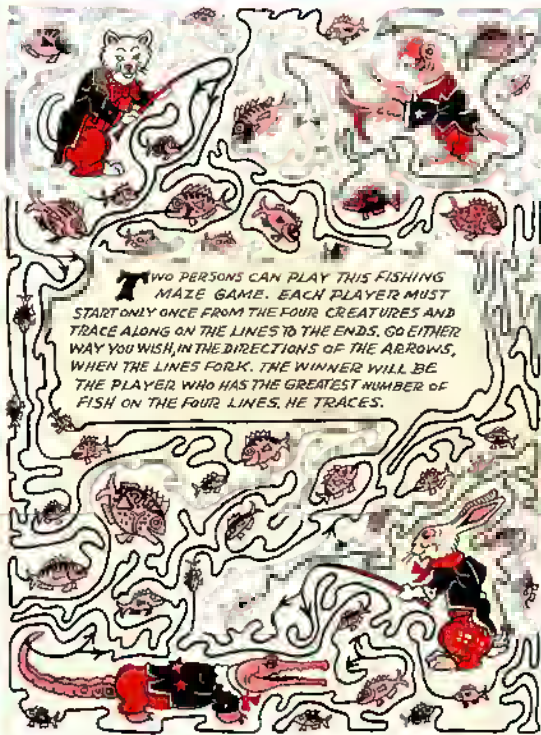 TWO PERSONS CAN PLAY THIS FISHING
MAZE GAME. EACH PLAYER MUST
START ONLY ONCE FROM THE FOUR CREATURES AND
TRACE ALONG ON THE LINES TO THE ENDS. GO EITHER
WAY YOU WISH, IN THE DIRECTIONS OF THE ARROWS,
WHEN THE LINES FORK. THE WINNER WILL BE
THE PLAYER WHO HAS THE GREATEST NUMBER OF
FISH ON THE FOUR LINES. HE TRACES.